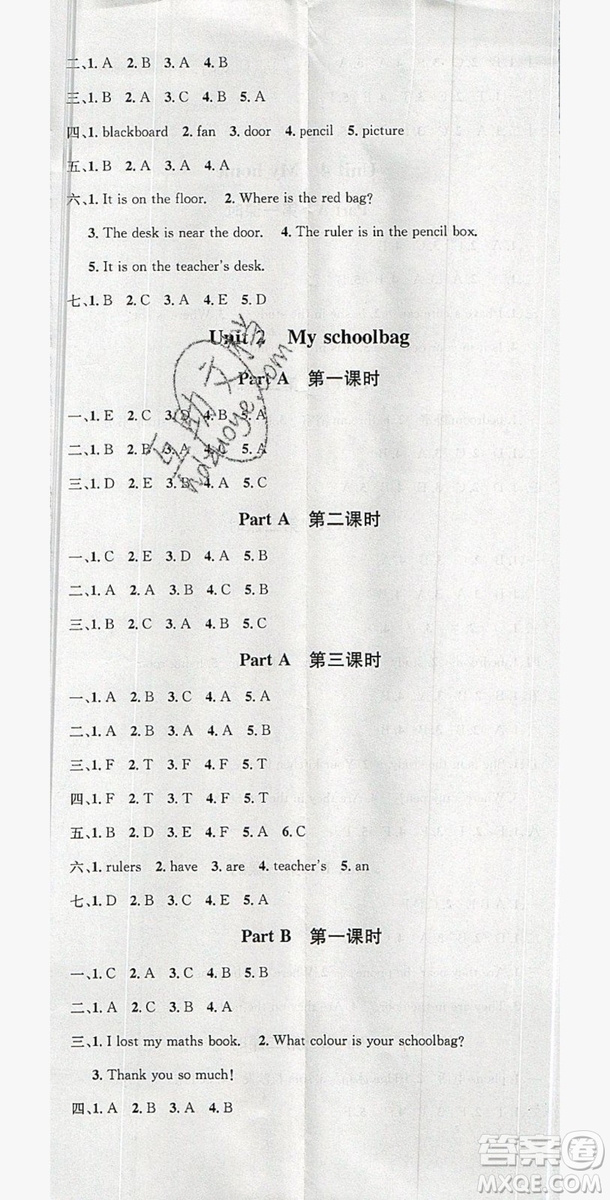 二、1. A 2. B 3. A 4. B
三、1. B 2. A 3. C 4. B 5. A
四、1. blackboard 2. fan 3. door 4. pencil 5. picture
五、1. A 2. B 3. A 4. B
六、1. It is on the floor. 2. Where is the red bag?
3. The desk is near the door. 4. The ruler is in the pencil box.
5. It is on the teacher's desk.
七、1. B 2. C 3. A 4. E 5. D
Unit 2 My schoolbag
Part A 第一课时
一、1. E 2. C 3. D 4. B 5. A
二、1. B 2. B 3. A 4. A 5. B
三、1. C 2. E 3. D 4. B 5. A
Part A 第二课时
一、1. C 2. E 3. D 4. A 5. B
二、1. A 2. A 3. B 4. A 5. B
三、1. B 2. C 3. E 4. D 5. A
Part A 第三课时
一、1. A 2. B 3. B 4. A 5. A
二、1. A 2. B 3. C 4. B
三、1. F 2. T 3. F 4. F 5. T
四、1. F 2. T 3. T 4. T 5. F
五、1. B 2. D 3. E 4. F 5. A 6. C
六、1. rulers 2. have 3. are 4. teacher's 5. an
七、1. D 2. B 3. C 4. E 5. A
Part B 第一课时
一、1. C 2. A 3. C 4. B 5. C
二、1. A 2. A 3. B 4. B 5. A
三、1. I lost my maths book. 2. What colour is your schoolbag?
3. Thank you so much!
四、1. A 2. B 3. A 4. B 5. A
互助文档
hdzuoye.com
答案圈
MXQE.COM